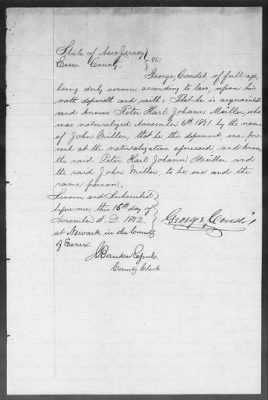 State of New Jersey
Essex County } ss.
George Condit of full age,
being duly sworn according to law, upon his
oath deposeth and saith: That he is acquainted
and knows Peter Karl Johann Müller, who
was naturalized November 6th 18 by the name
of John Miller, that he the deponent was pre-
sent at the naturalization aforesaid and knows
the said Peter Karl Johann Müller and
the said John Miller, to be one and the
same person.
Sworn and subscribed
before me this 16th day of
November A. D. 1872.
at Newark in the County
of Essex
George Condit
County Clerk